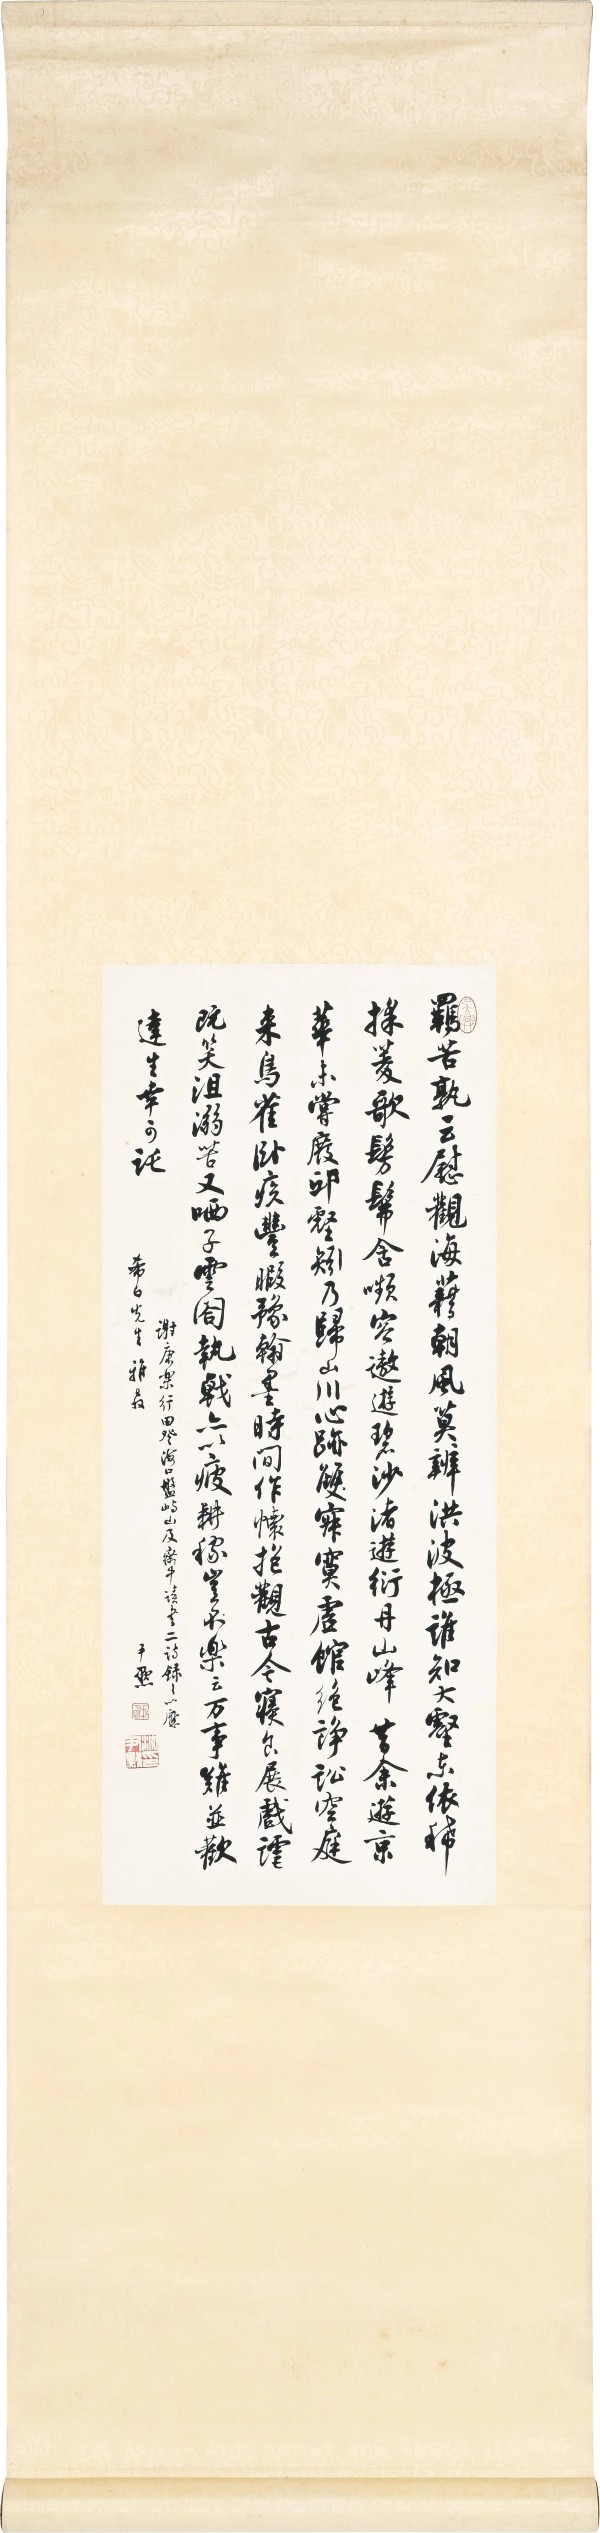 羈苦孰云慰觀海藉朝風莫辨洪波極誰知大壑東依稀
採菱歌髣髴含嚬容遨遊碧沙渚遊衍丹山峰 昔余遊京
華未嘗廢邱壑矧乃歸山川心跡雙寂寞虛館絕諍訟空庭
来鳥雀臥疾豐暇豫翰墨時間作懷抱觀古今寢食展戲謔
既笑沮溺苦又哂子雲閣執戟亦以疲耕稼豈不樂云万事難並歡
達生幸可託
謝康樂行田登海口盤嶼山及齋中讀書二詩錄之以應
希白先生雅教 尹默